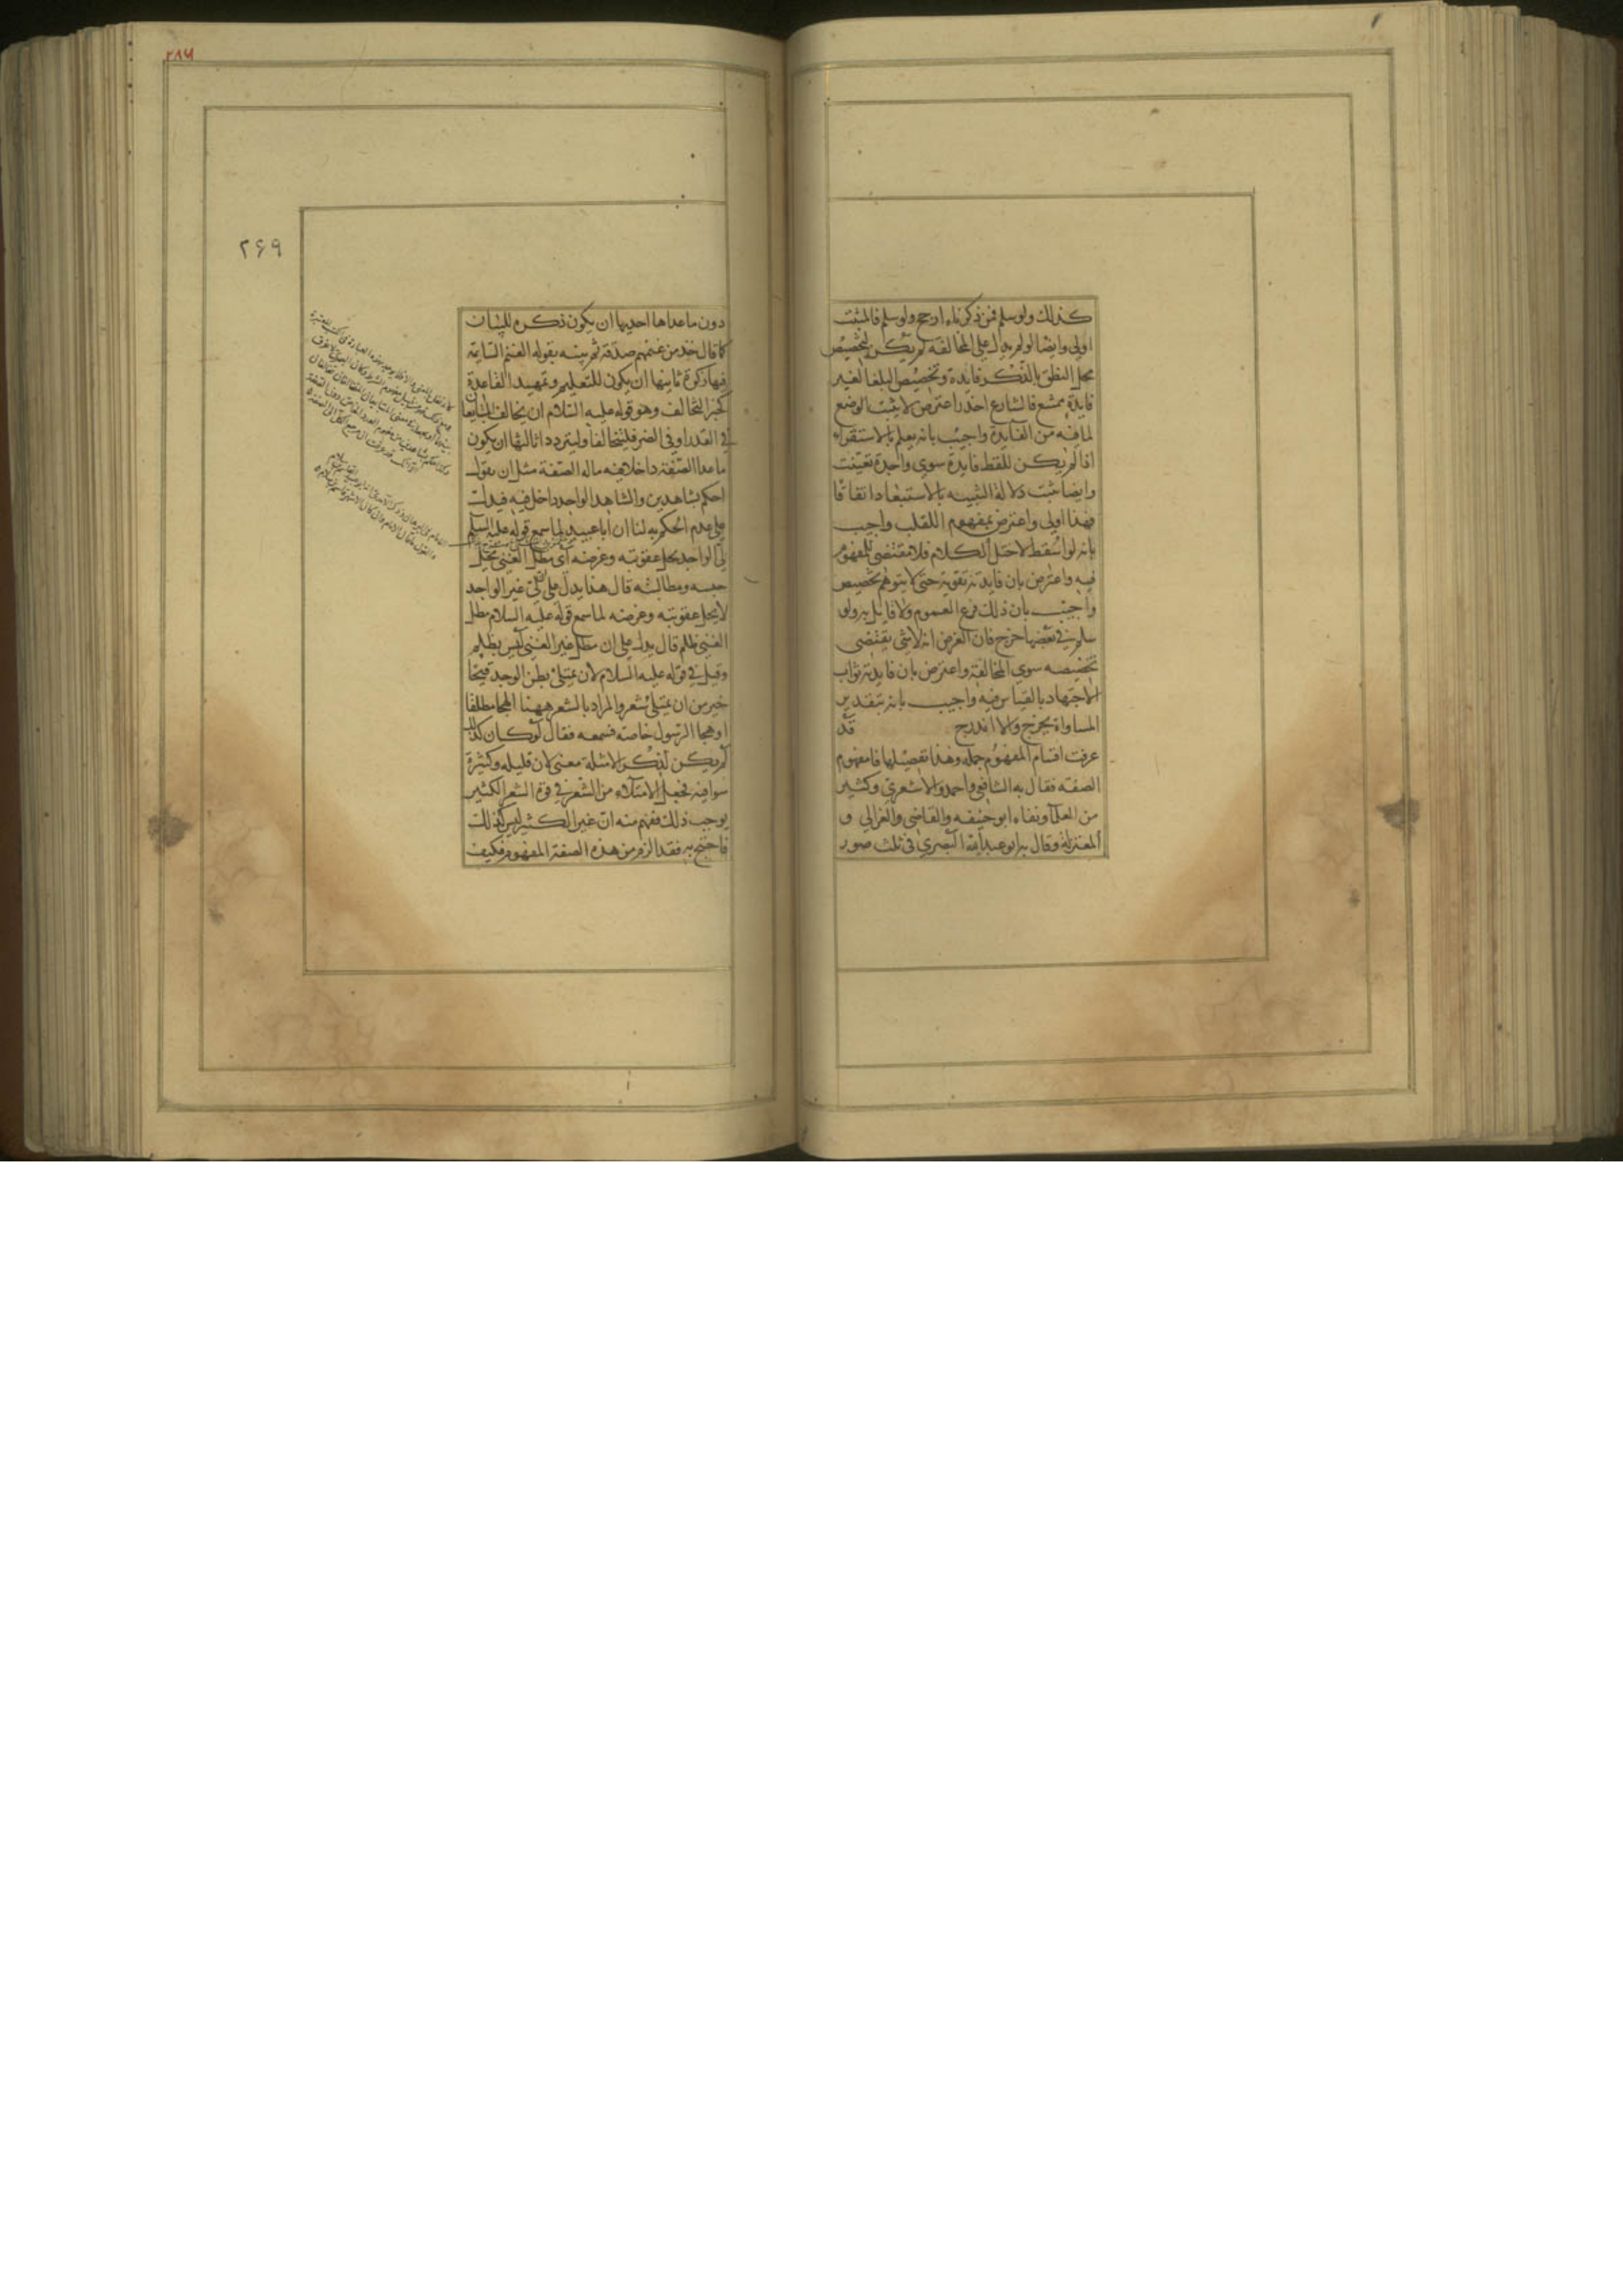 كذلك ولو سلم فمن ذكرناه ارجح ولو سلم فالمثبت
اولى وايضا لو لم يدل على المخالفة لم يكن لتخصيص
محل النطق بالذكر فايدة وتخصيص البلغا لغير
فايدة ممتنع فالشارع اجدر اعترض لا يثبت الوضع
لما فيه من الفايدة واجيب بانه يعلم بالاستقراء
اذا لم يكن للفظ فايدة سوى واحدة تعينت
وايضا ثبت دلالة التنبيه بالاستبعاد اتفاقا
فهذا اولى واعترض بمفهوم اللقب واجيب
بانه لو اسقط لاختل الكلام فلا مقتضى للمفهوم
فيه واعترض بان فايدته تقوية حتى لا يتوهم تخصيص
واجيب بان ذلك فرع العموم ولا قايل به ولو
سلم في بعضها خرج فان الغرض انه لا شي يقتضى
تخصيصه سوى المخالفة واعترض بان فايدته ثواب
الاجتهاد بالقياس فيه واجيب بانه بتقدير
المساواة يخرج والا اندرج قد
عرفت اقسام المفهوم جملة وهذا تفصيلها فامفهوم
الصفة فقال به الشافعي واحمد والاشعري وكثير
من العلما ونفاه ابو حنيفه والقاضى والغزالي و
المعتزلة وقال به ابو عبد الله البصري في ثلث صور
٢٨٦
٢٦٩
دون ما عداها احديها ان يكون ذكره للبيان
كما قال خذ من غنمهم صدقة ثم بينه بقوله الغنم السايمة
فيها زكوة ثانيها ان يكون للتعليم وتمهيد القاعدة
كخبر التحالف وهو قوله عليه السلام ان تخالف المتبايعان
في القدر او في الصفة فليتحالفا وليترددا ثالثها ان يكون
ما عدا الصفة داخلا فيه ماله الصفة مثل ان يقول
احكم بشاهدين والشاهد الواحد داخل فيه فيدل
على عدم الحكم به لنا ان ابا عبيد لما سمع قوله عليه السلم
لي الواجد يحل عقوبته وعرضه اى مطل الغنى يحل
حبسه ومطالبته قال هذا يدل على ان لي غير الواجد
لا يحل عقوبته وعرضه لما سمع قوله عليه السلام مطل
الغنى ظلم قال يدل على ان مطل غير الغنى ليس بظلم
وقيل في قوله عليه السلام لان يمتلئ بطن الرجل قيحا
خير من ان يمتلئ شعرا والمراد بالشعر ههنا الهجا مطلقا
او هجا الرسول خاصة فسمعه فقال لو كان كذلك
لم يكن لذكر الامتلاء معنى لان قليله وكثيره
سوا فيه فجعل الامتلاء من الشعر في قوة الشعر الكثير
يوجب ذلك ففهم منه ان غير الكثير ليس كذلك
فاحتج به فقد الزم من هذه الصفة المفهوم فكيف